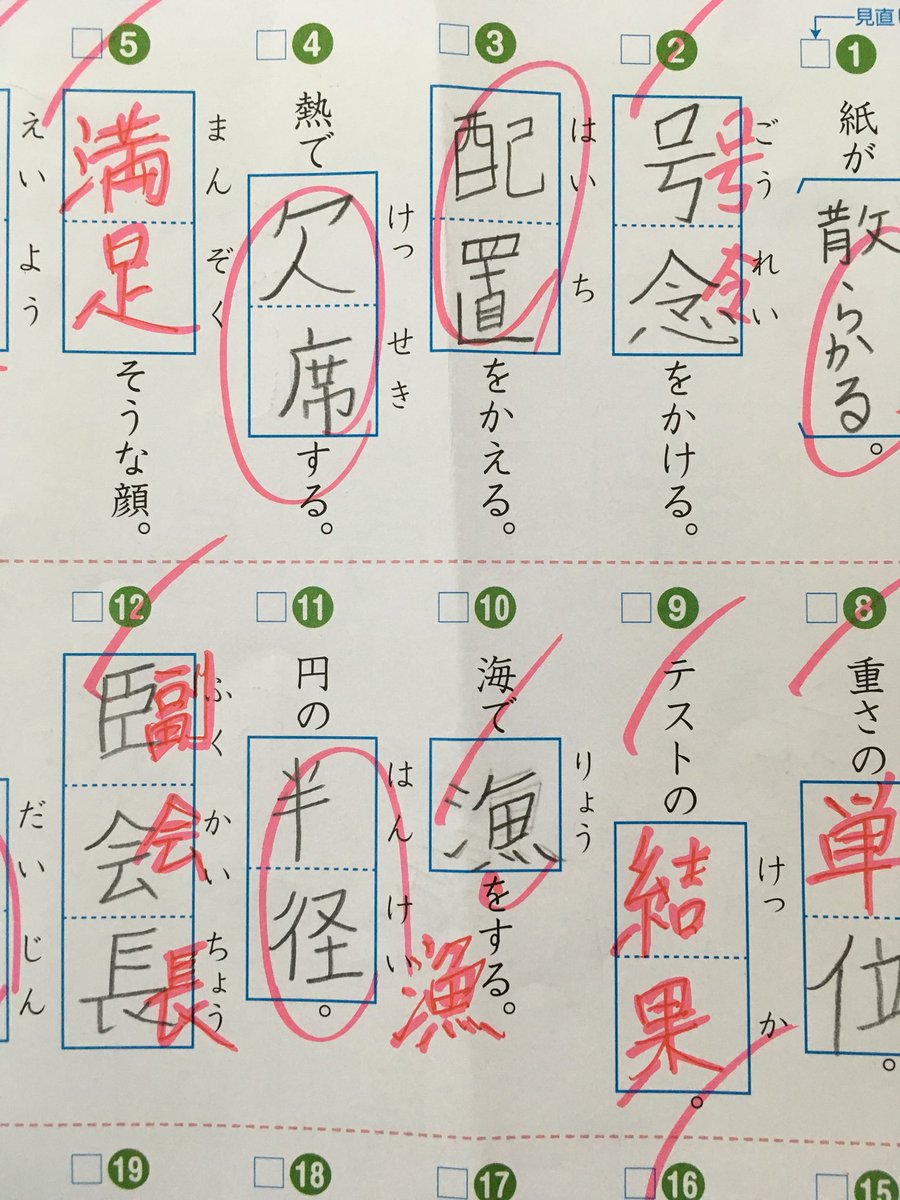 見直し
1
紙が散らかる。
2
号念をかける。
ごうれい
号令
3
配置をかえる。
はいち
4
熱で欠席する。
けっせき
5
満足そうな顔。
まんぞく
えいよう
8
重さの単位。
9
テストの結果。
けっか
10
海で漁をする。
りょう
漁
11
円の半径。
はんけい
12
臣会長
ふくかいちょう
副会長
だいじん
15
16
17
18
19